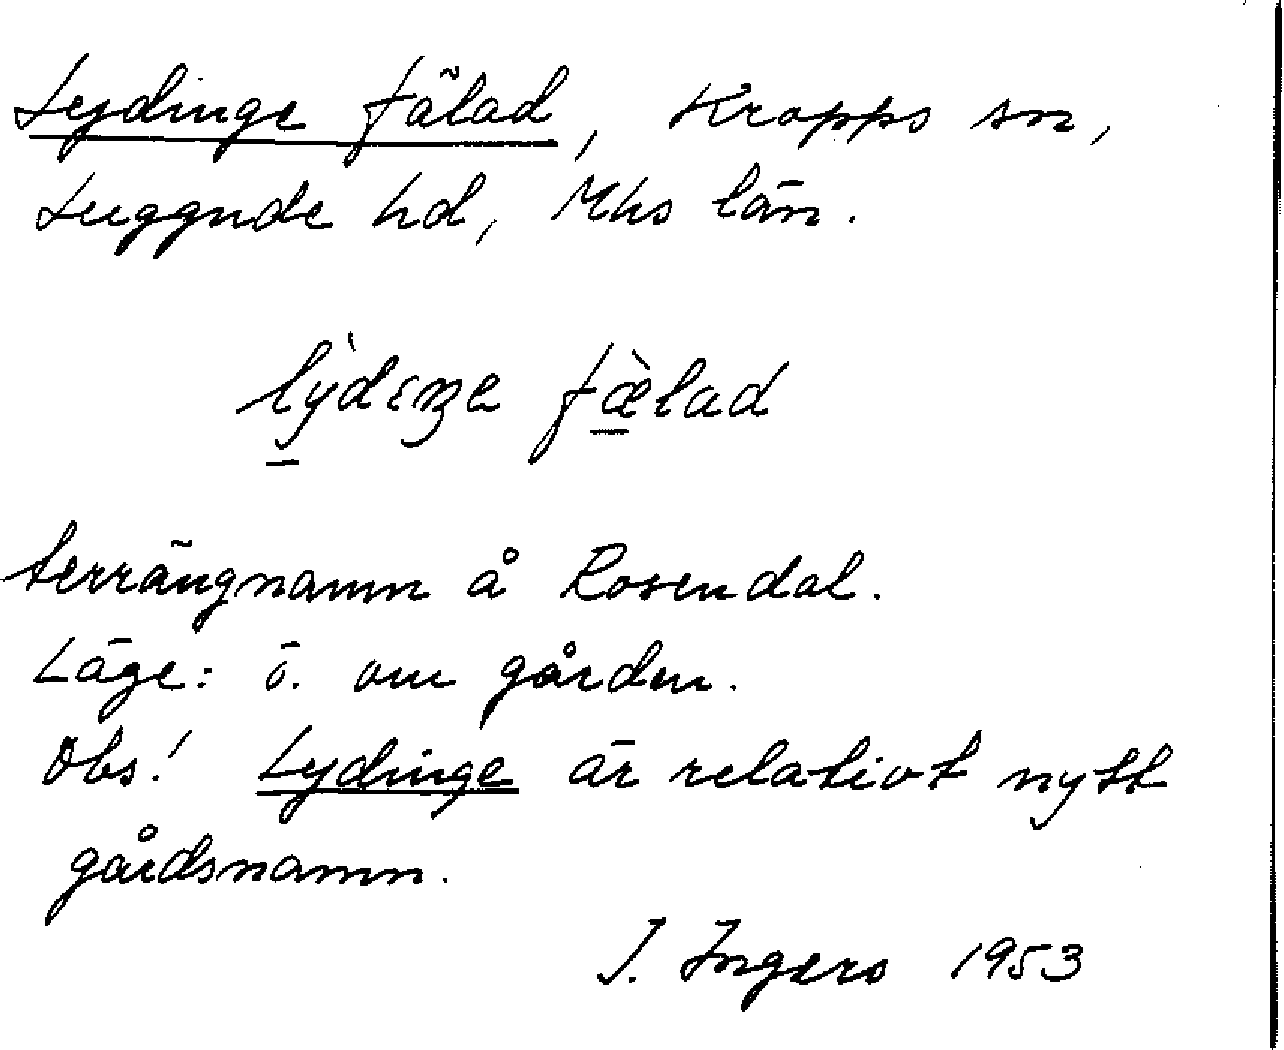 Lydinge fälad, Kropps sn,
Luggude hd, Mhs län.
lỳdiŋe fæ̀lad
terrängnamn å Rosendal.
Läge: ö. om gården.
Obs! Lydinge är relativt nytt
gårdsnamn.
I. Ingers 1953